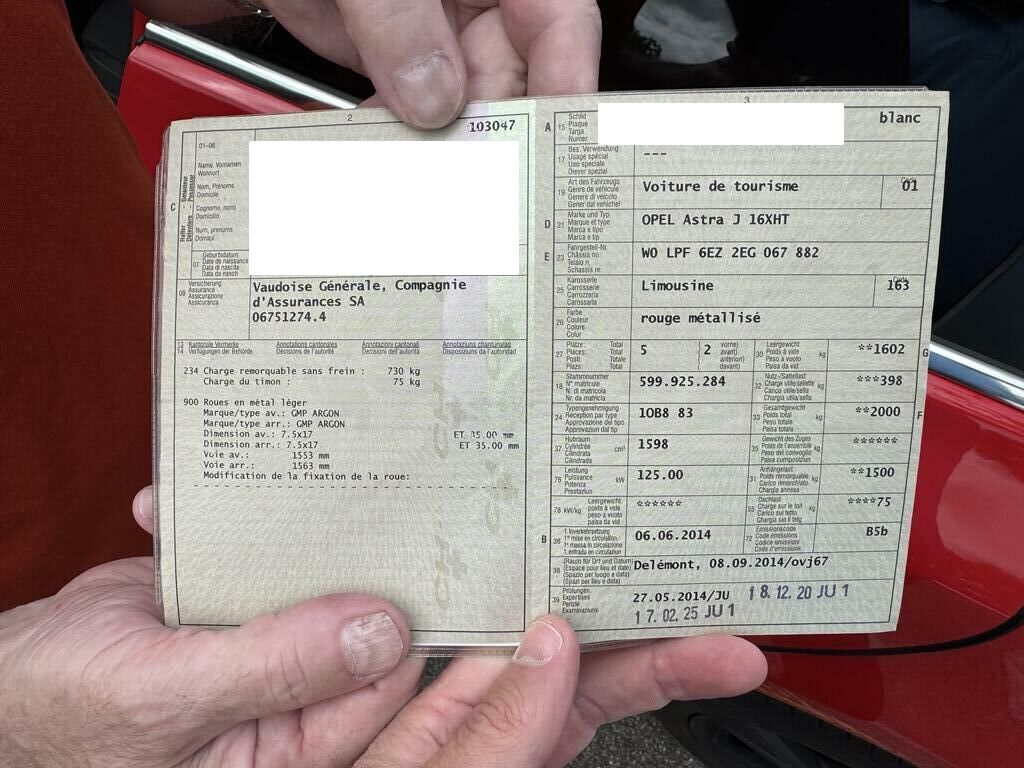 2
103047
01–06
Name, Vornamen
Wohnort
Nom, Prénoms
Domicile
Cognome, nomi
Domicilio
Num, prenums
Domicil
C
07
Geburtsdatum
Date de naissance
Data di nascita
Data da nasch
09
Versicherung
Assurance
Assicurazione
Assicuranza
Vaudoise Générale, Compagnie
d'Assurances SA
06751274.4
13 Kantonale Vermerke Annotations cantonales Annotazioni cantonali Annotaziuns chantunalas
14 Verfügungen der Behörde Décisions de l'autorité Decisioni dell'autorità Disposiziuns da l'autoridad
234 Charge remorquable sans frein : 730 kg
Charge du timon : 75 kg
900 Roues en métal léger
Marque/type av.: GMP ARGON
Marque/type arr.: GMP ARGON
Dimension av.: 7.5x17 ET 35.00 mm
Dimension arr.: 7.5x17 ET 35.00 mm
Voie av.: 1553 mm
Voie arr.: 1563 mm
Modification de la fixation de la roue:
3
A 15
Schild
Plaque
Targa
Numer
blanc
17
Bes. Verwendung
Usage spécial
Uso speciale
Diever spezial
---
19
Art des Fahrzeugs
Genre de véhicule
Genere di veicolo
Gener dal vehichel
Voiture de tourisme
Code
01
D 21
Marke und Typ
Marque et type
Marca e tipo
Marca e tip
OPEL Astra J 16XHT
E 23
Fahrgestell-Nr.
Châssis no
Telaio n.
Schassis nr.
W0 LPF 6EZ 2EG 067 882
25
Karosserie
Carrosserie
Carrozzeria
Carossaria
Limousine
Code
163
26
Farbe
Couleur
Colore
Colur
rouge métallisé
27
Plätze: Total
Places: Total
Posti: Totale
Plazs: Total
5
(2
vorne)
avant)
anteriori)
davant)
30
Leergewicht
Poids à vide
Peso a vuoto
Paisa da vid
kg
**1602
G
18
Stammnummer
N° matricule
N. di matricola
Nr. da matricla
599.925.284
32
Nutz-/Sattellast
Charge utile/sellette
Carico utile/sella
Chargia utila/sella
kg
***398
24
Typengenehmigung
Réception par type
Approvazione del tipo
Approvaziun dal tip
1OB8 83
33
Gesamtgewicht
Poids total
Peso totale
Paisa totala
kg
**2000
F
37
Hubraum
Cylindrée
Cilindrata
Cilindrada
cm³
1598
35
Gewicht des Zuges
Poids de l'ensemble
Peso del convoglio
Paisa cumposiziun
kg
******
76
Leistung
Puissance
Potenza
Prestaziun
kW
125.00
31
Anhängelast
Poids remorquable
Carico rimorchiato
Chargia annexa
kg
**1500
78 kW/kg
Leergewicht
poids à vide
peso a vuoto
paisa da vid
******
55
Dachlast
Charge sur le toit
Carico sul tetto
Chargia sin il tetg
kg
****75
B 36
1. Inverkehrsetzung
1re mise en circulation
1a messa in circolazione
1. entrada en circulaziun
06.06.2014
72
Emissionscode
Code émissions
Codice emissioni
Code d'emissiuns
B5b
38
(Raum für Ort und Datum)
(Espace pour lieu et date)
(Spazio per luogo e data)
(Spazi per lieu e data)
Delémont, 08.09.2014/ovj67
39
Prüfungen
Expertises
Perizie
Examinaziuns
27.05.2014/JU 18.12.20 JU 1
17.02.25 JU 1